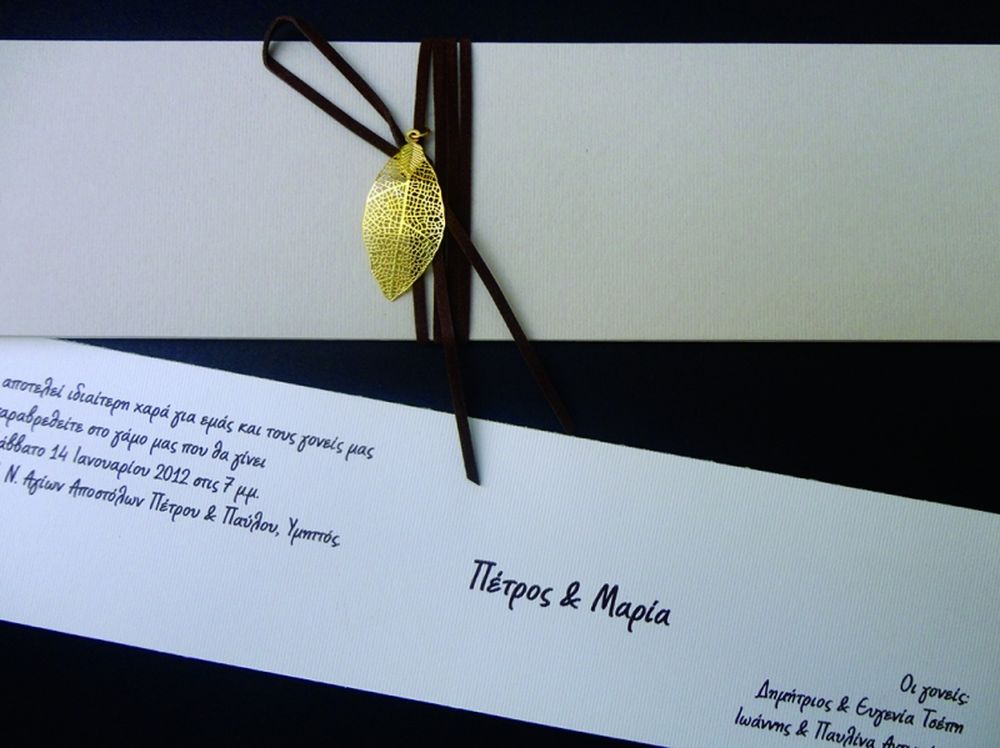 αποτελεί ιδιαίτερη χαρά για εμάς και τους γονείς μας
στο γάμο μας που θα γίνει
14 Ιανουαρίου 2012 στις 7 μμ.
Ν. Αγίων Αποστόλων Πέτρου & Παύλου, Υμηττός
Πέτρος & Μαρία
Οι γονείς:
Δημήτριος & Ευγενία Τσέπη
Ιωάννης & Παυλίνα